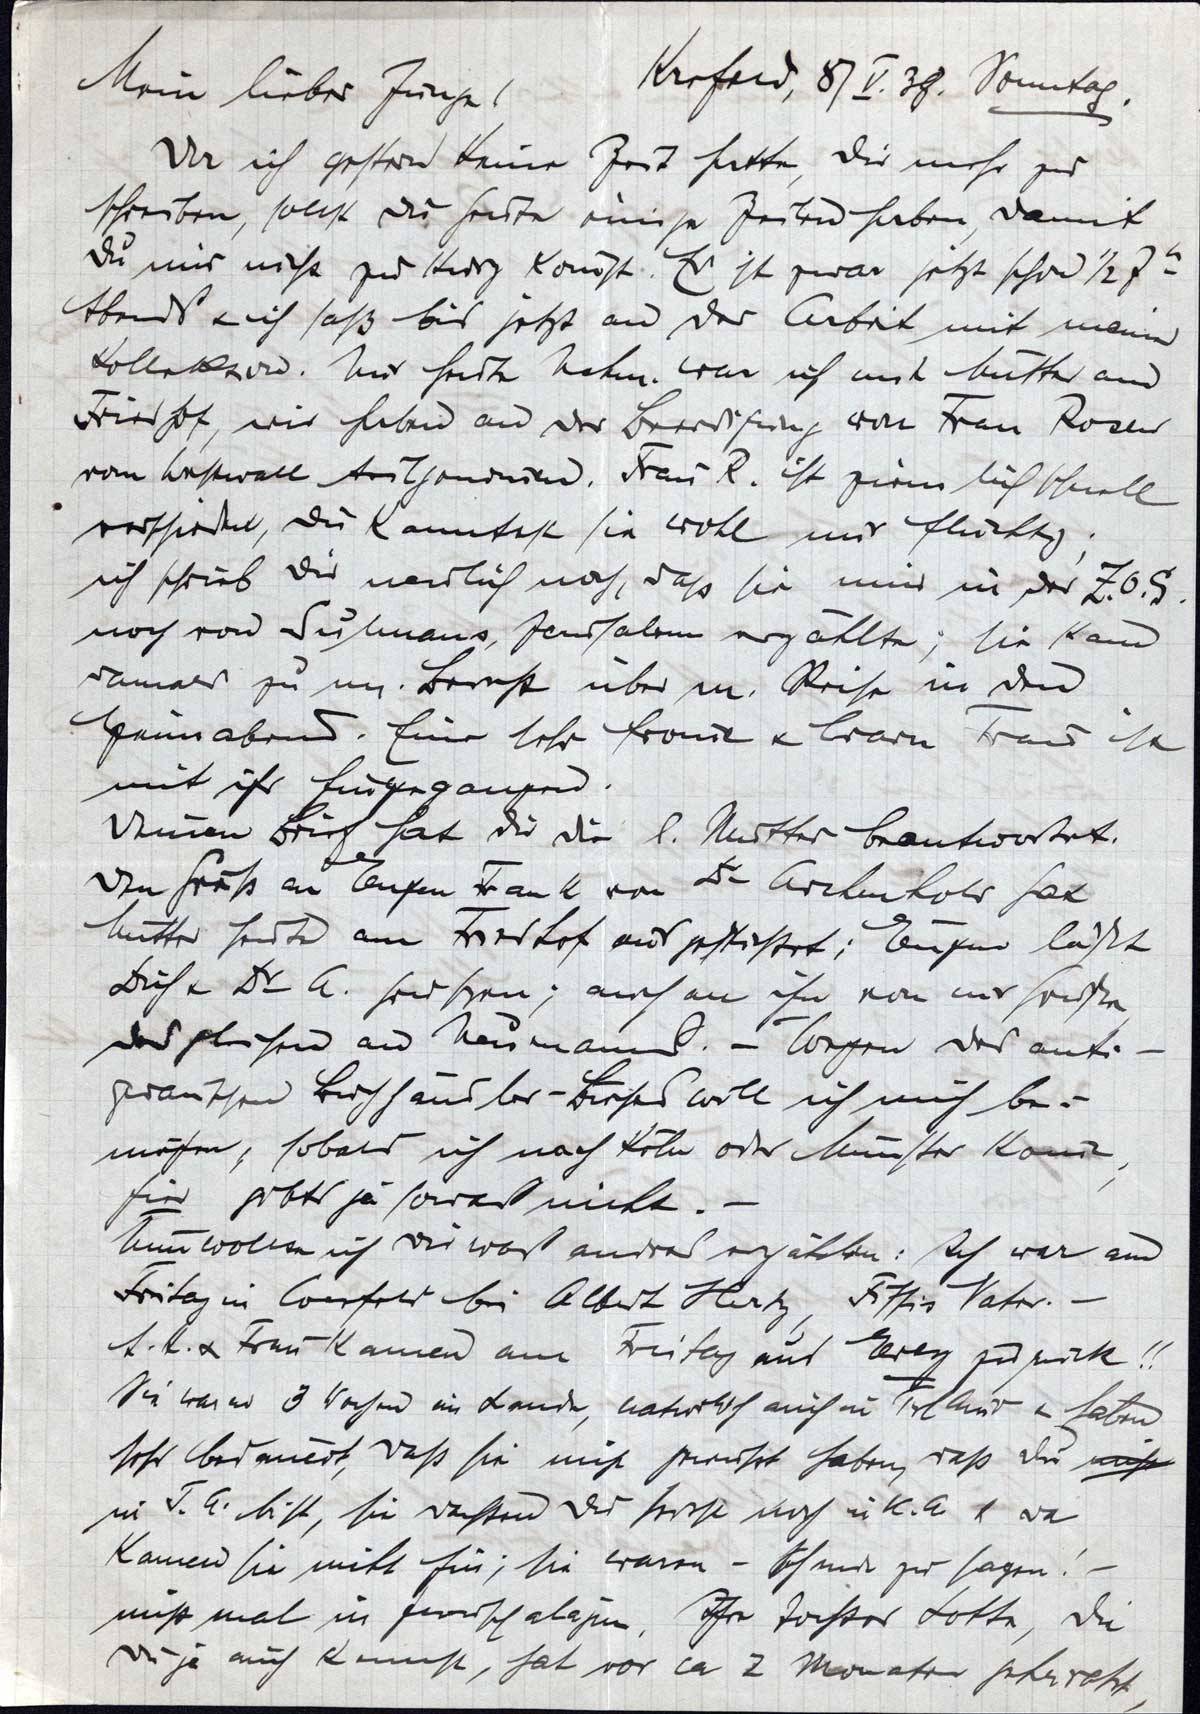 Mein lieber Junge! Krefeld, 8/V.38. Sonntag.
Da ich gestern keine Zeit hatte, dir mehr zu
schreiben, sollst du heute einige Zeilen haben, damit
du mir nicht zu kurz kommst. Es ist zwar jetzt schon ½ 7 h
Abends & ich saß bis jetzt an der Arbeit mit meinen
Kollektion. Nur heute Nachm. war ich mit Mutter am
Friedhof, wir haben an der Beerdigung von Frau Rosen
vom Westwall teilgenommen. Frau R. ist ziemlich schnell
verschieden, du kanntest sie wohl nur flüchtig;
ich schrieb dir neulich noch, daß sie mir in der Z.O.G.
noch von Jerusalem erzählte; sie kam
damals zu m. Bericht über m. Reise in den
Heimabend. Eine sehr fromme & brave Frau ist
mit ihr hingegangen.
Deinen Brief hat dir die l. Mutter beantwortet.
Den Gruß an Eugen Frank von Dr Archenhold hat
Mutter heute am Friedhof ausgerichtet; Eugen läßt
Dich & Dr A. grüßen; auch an ihn von mir Grüße,
desgleichen an Neumanns. – Wegen des anti-
quarischen Buchhändler- will ich mich be-
mühen, sobald ich nach Köln oder Münster komme,
hier gibts ja sowas nicht. –
Nun wollte ich dir was andres erzählen: Ich war am
Freitag in Coesfeld bei Albert Hertz, Vater. –
A. H. & Frau kamen am Freitag aus Erez zurück!!
Sie waren 3 Wochen im Lande, natürlich auch in Tel Aviv & haben
sehr bedauert, daß sie nicht gewußt haben, daß du nicht
in T.A. bist, sie dachten du seist noch in K.A & da
kamen sie nicht hin; sie waren – Schande zu sagen! –
nicht mal in Jeruschalajim. Ihre Tochter Lotte, die
du ja auch kennst, hat vor ca 2 Monaten geheiratet,